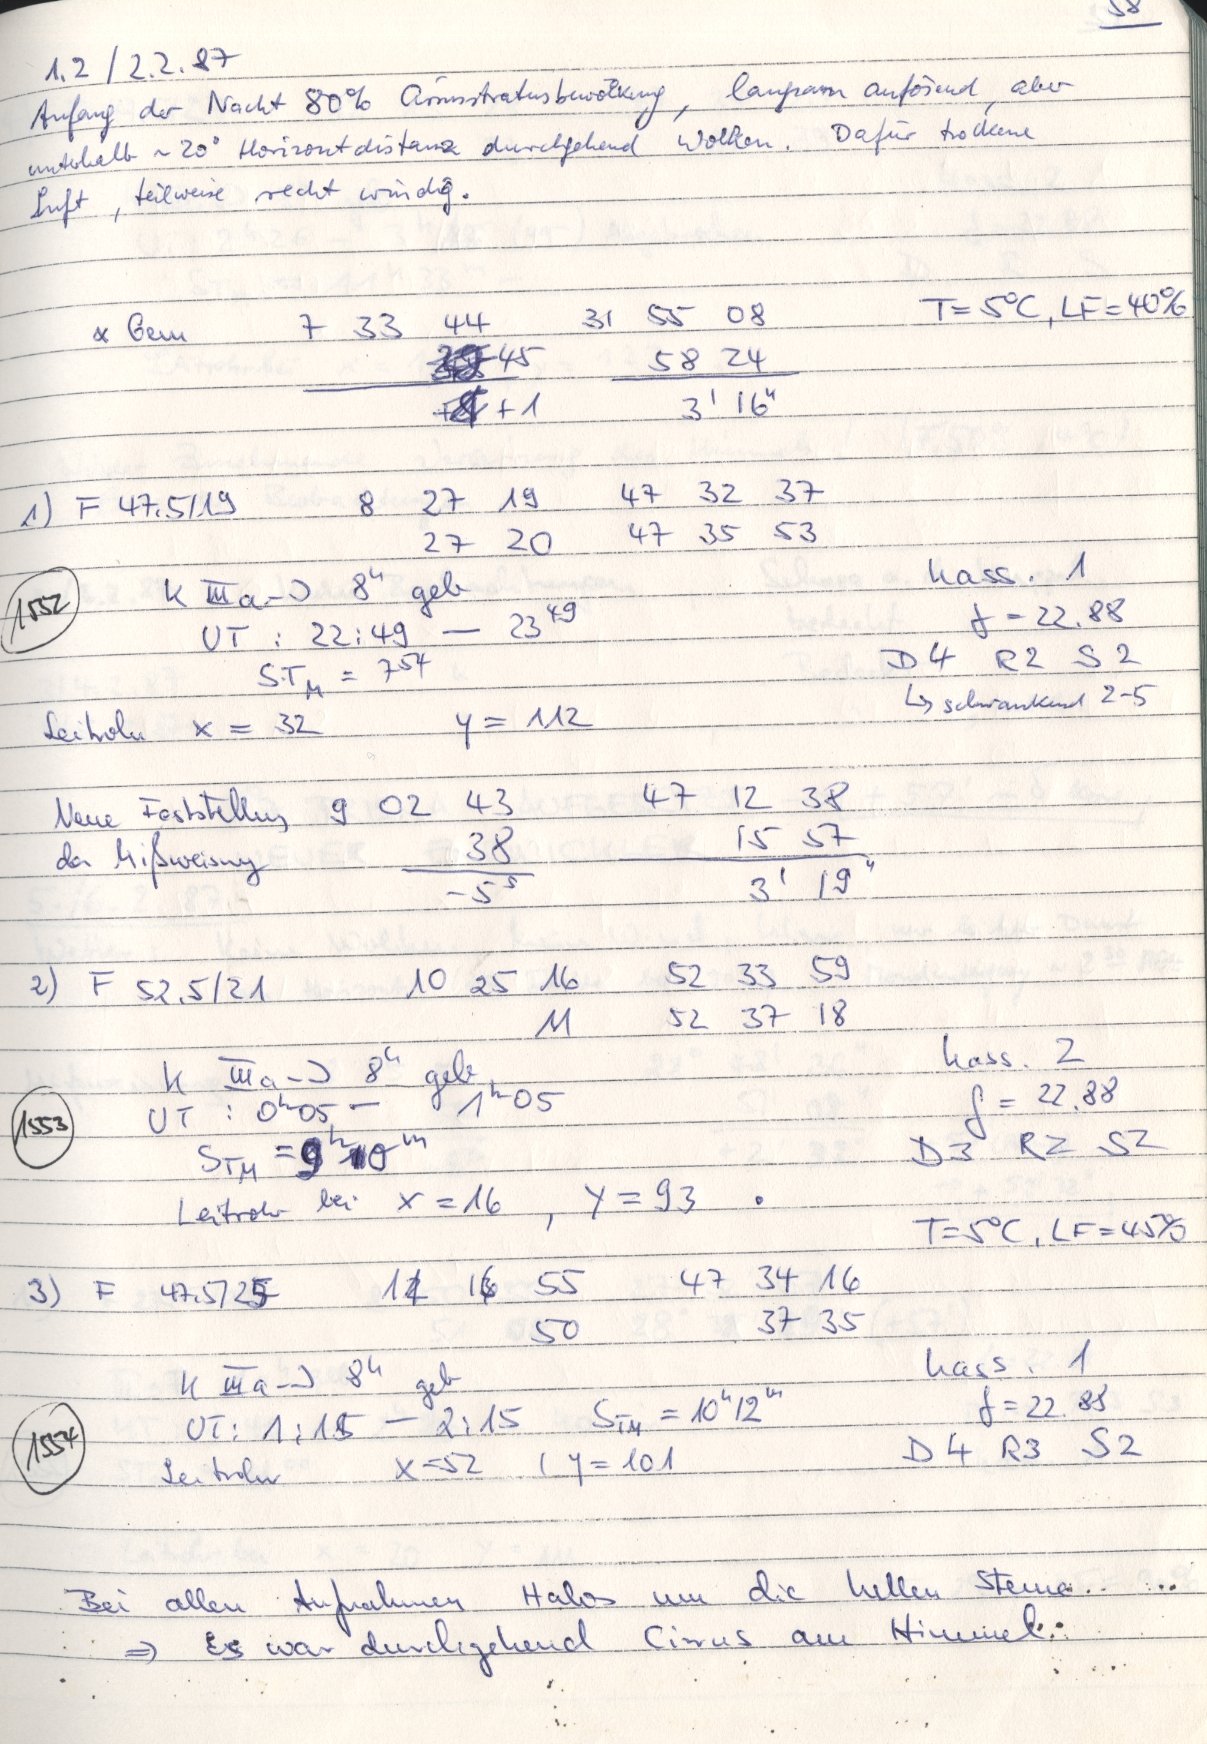 58
1.2 / 2.2.87
Anfang der Nacht 80% Cirrusstratusbewölkung, langsam auflösend, aber
unterhalb ~20° Horizontdistanz durchgehend Wolken. Dafür trockene
Luft, teilweise recht windig.
α Gem 7 33 44 31 55 08 T=5°C, LF=40%
45 58 24
+1 3' 16"
1) F 47.5/19 8 27 19 47 32 37
27 20 47 35 53
1552 K IIIa-J 8h geb Kass. 1
UT : 22:49 — 23 49 f = 22.88
STM = 7 54 D4 R2 S2
Leitrohr x = 32 y = 112 ↳ schwankend 2-5
Neue Feststellung 9 02 43 47 12 38
der Mißweisung 38 15 57
-5s 3' 19"
2) F 52.5/21 10 25 16 52 33 59
11 52 37 18
K IIIa-J 8h geb Kass. 2
1553 UT : 0h05 — 1h05 f = 22.88
STM = 9h 10m D3 R2 S2
Leitrohr bei x = 16, y = 93 .
T=5°C, LF=45%
3) F 47.5/25 11 16 55 47 34 16
50 37 35
K IIIa-J 8h geb Kass. 1
1554 UT: 1:15 — 2:15 STM = 10h12m f = 22.88
Leitrohr x=52 , y=101 D4 R3 S2
Bei allen Aufnahmen Halos um die hellen Sterne.. ...
⇒ Es war durchgehend Cirrus am Himmel.